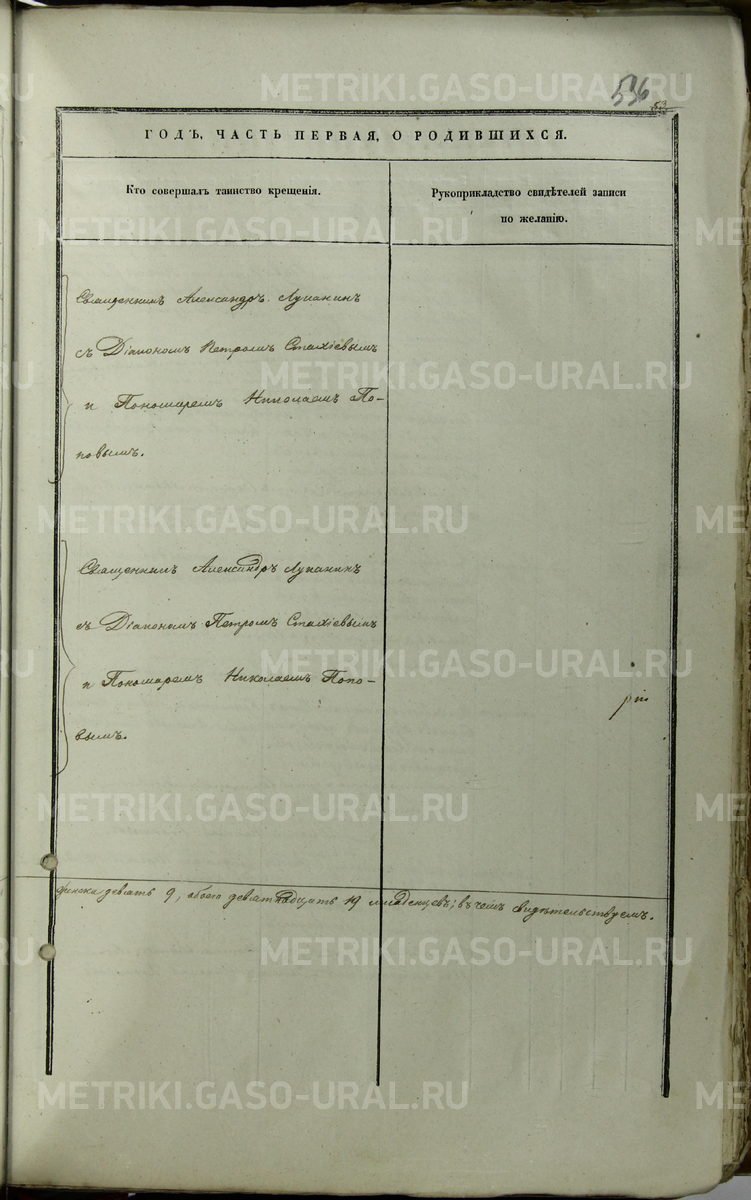 536
53
ГОДЪ, ЧАСТЬ ПЕРВАЯ, О РОДИВШИХСЯ.
Кто совершалъ таинство крещенія.
Рукоприкладство свидѣтелей записи
по желанію.
Священникъ Александръ Луканинъ
съ Діакономъ Петромъ Стахіевымъ
и Пономаремъ Николаемъ По-
повымъ.
Священникъ Александръ Луканинъ
съ Діакономъ Петромъ Стахіевымъ
и Пономаремъ Николаемъ Попо-
вымъ.
женска девять 9, обоего девятнадцать 19 младенцевъ; въ чемъ свидѣтельствуемъ.
METRIKI.GASO-URAL.RU